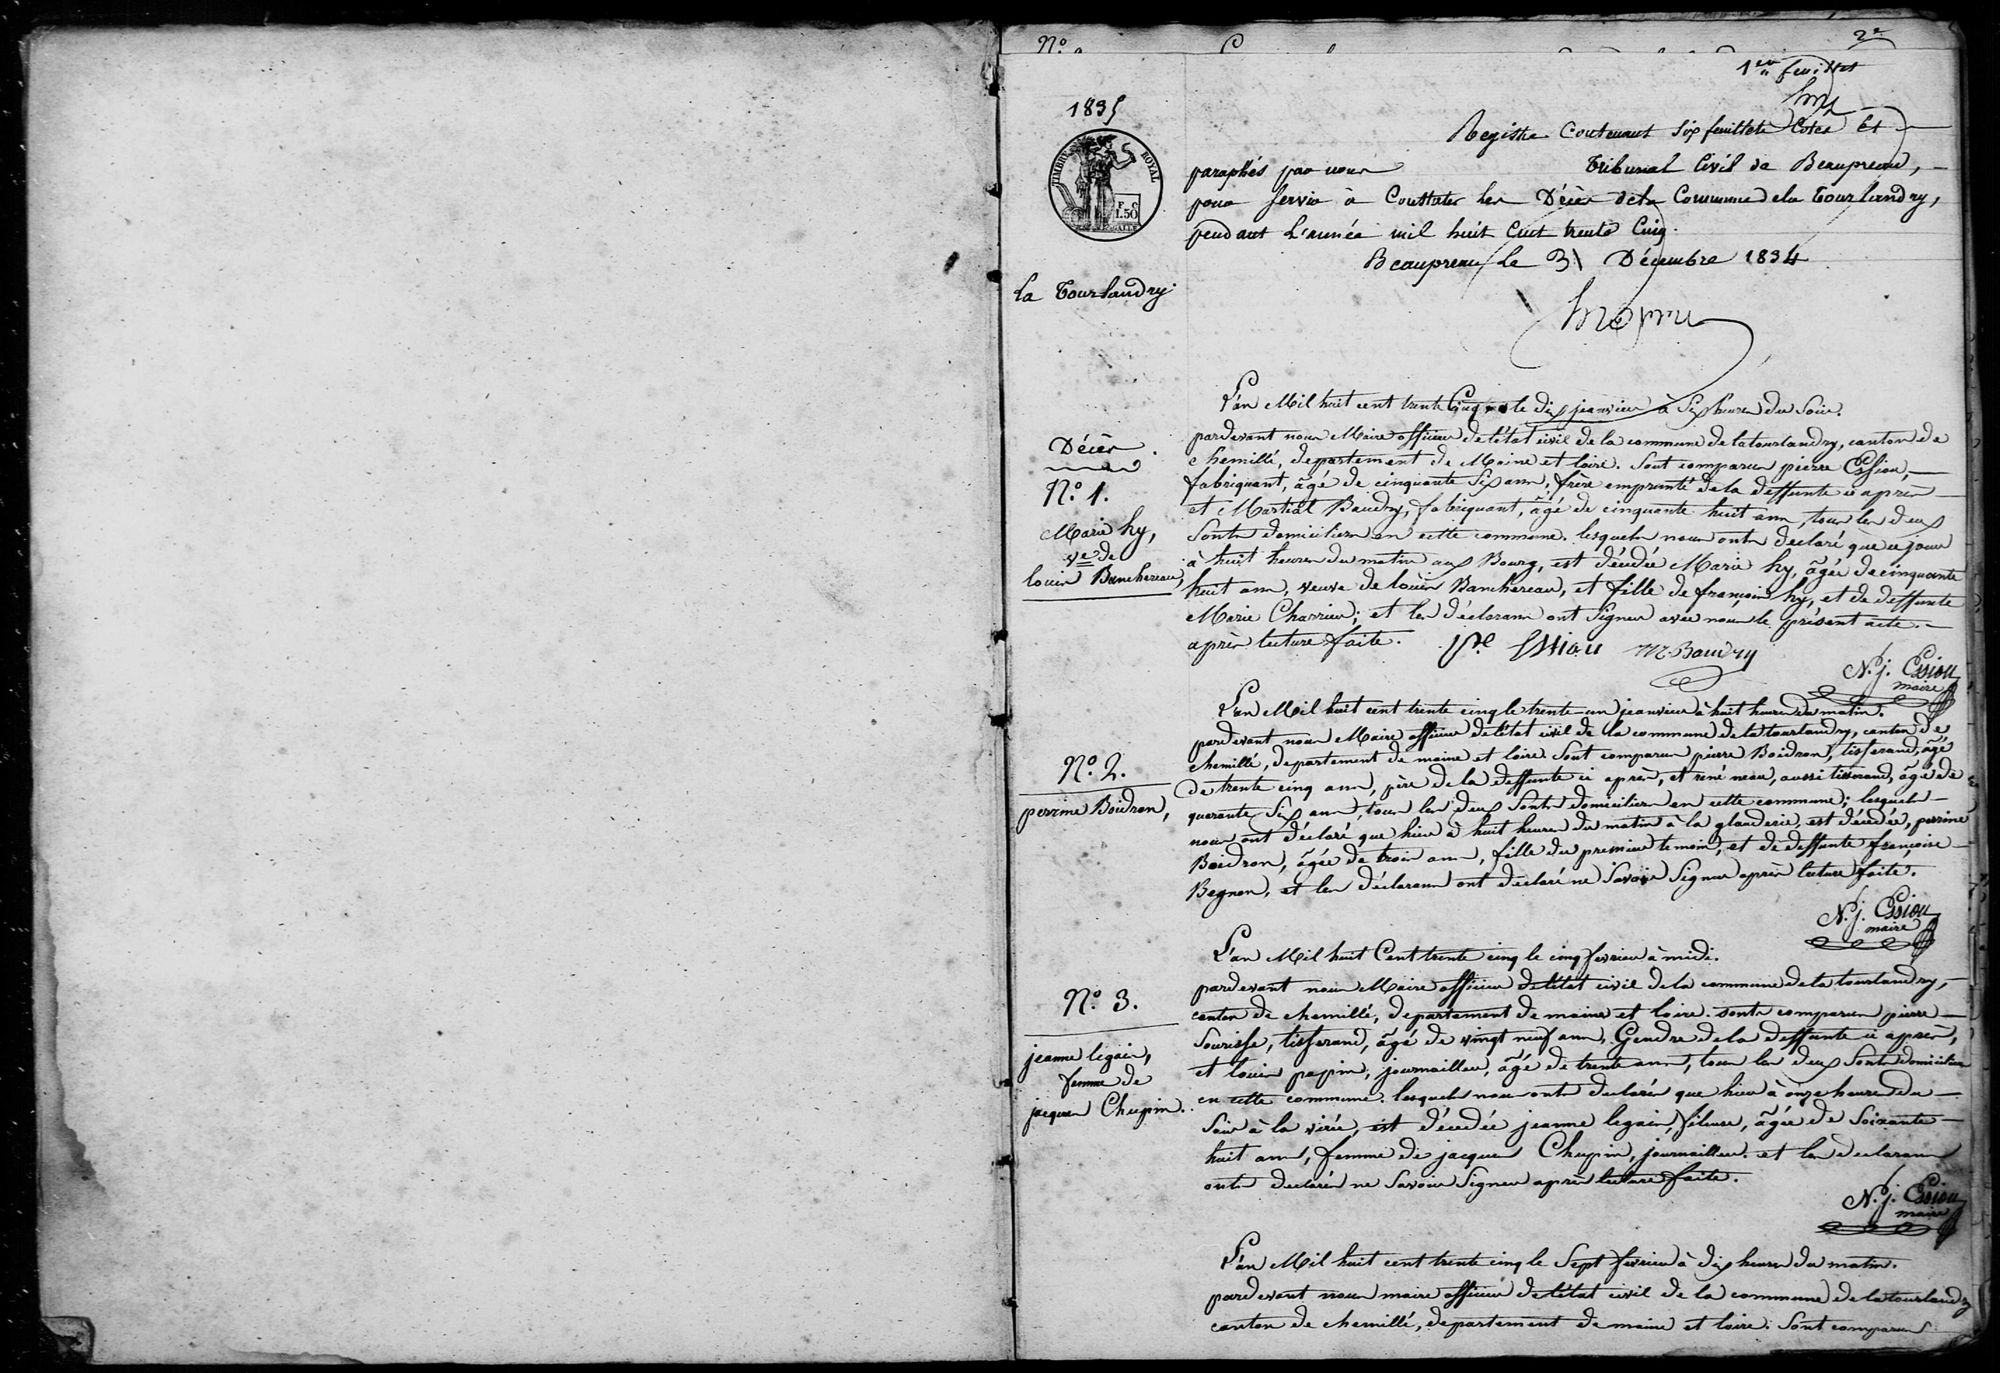 N.º
2e
1er feuillet
1835
TIMBRE ROYAL
F. C.
1.50
Registre Contenant Six feuillets Cotés Et
paraphés par nous Tribunal Civil de Beaupreau,
pour Servir à Constater les Décès de la Commune de la Tourlandry,
pendant L'année mil huit Cent trente Cinq.
Beaupreau le 31 Décembre 1834
la Tourlandry.
L'an Mil huit cent trente Cinq le dix janvier à Six heures du Soir.
Décès
N.º 1.
Marie hy,
ve de
louis Banchereau,
pardevant nous Maire officier de l'état civil de la commune de latourlandry, canton de
chemillé, departement de Maine et loire. Sont comparus pierre Essiou,
fabriquant, âgé de cinquante Six ans, frère emprunté de la deffunte ci après
et Martial Baudry, fabriquant, âgé de cinquante huit ans, tous les deux
Sonts domiciliés en cette commune. lesquels nous onts declaré què ce jour
à huit heures du matin aux Bourg, est décédée Marie hy, âgée de cinquante
huit ans, veuve de loüis Banchereau, et fille de françois hy, et de deffunte
Marie Charrier; et les déclarans ont Signer avec nous le présent acte.
après lecture faite. Pre Essiou M Baudry
N. j. Essiou
maire
L'an Mil huit cent trente cinq le trente un jeanvier à huit heures du matin.
N.º 2.
perrine Boidron,
pardevant nous Maire officier de l'état civil de la commune de la tourlandry, canton de
chemillé, departement de maine et loire Sont comparus pierre Boidron, tisserand, âgé
de trente cinq ans, père de la deffunte ci après, et rené neau, aussi tisserand, âgé de
quarante Six ans, tous les deux Sonts domiciliés en cette commune; lesquels
nous ont déclaré que hier à huit heures du matin à la glauderie est décédée, perrine
Boidron, âgée de trois ans, fille du premier temoin, et de deffunte françoise
Begnon, et les déclarans ont déclaré ne Savoir Signer après lecture faite.
N. j. Essiou
maire
L'an Mil huit Cent trente cinq le cinq fevrier à midi.
N.º 3.
jeanne legais,
femme de
jacques Chupin.
pardevant nous Maire officier de l'état civil de la commune de la tourlandry,
canton de chemillé, departement de maine et loire. sonts comparus pierre
Sourisse, tisserand, âgé de vingt neuf ans, Gendre de la deffunte ci après,
et louis papin, journaillier, âgé de trente ans, tous les deux Sonts domicilies
en cette commune. lesquels nous onts declarés que hier à onze heures du
Soir à la virée, est décédée jeanne legais, fileuse, âgée de Soixante
huit ans, femme de jacques Chupin, journaillier. et les declarans
onts declarés ne Savoir Signer après lecture faite.
N. j. Essiou
maire
L'an Mil huit cent trente cinq le Sept fevrier à dix heures du matin.
pardevant nous maire officier de l'état civil de la commune de latourlandry
canton de chemillé, departement de maine et loire. Sont comparus